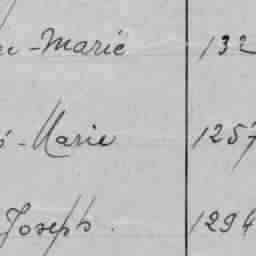 -Marie 132
-Marie 1257
Joseph. 1294